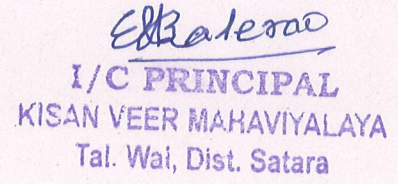 I/C PRINCIPAL
KISAN VEER MAHAVIYALAYA
Tal. Wai, Dist. Satara